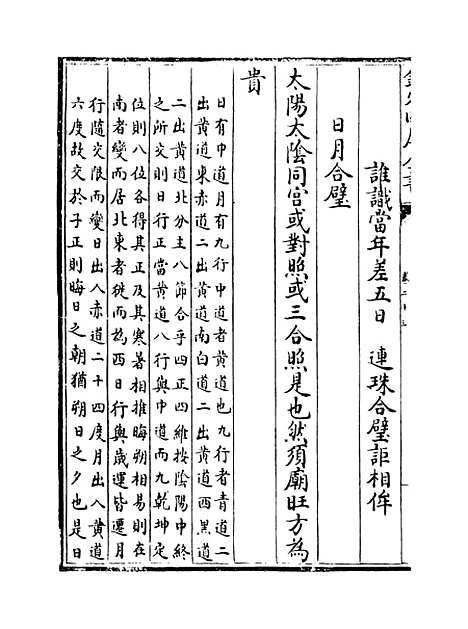 誰識當年差五日　連珠合璧詎相侔
日月合璧
太陽太陰同宫或對照或三合照是也然須廟旺方為
貴
日有中道月有九行中道者黄道也九行者青道二
出黄道東赤道二出黄道南白道二出黄道西黑道
二出黄道北分主八節合乎四正四維按陰陽中終
之所交則日行正當黄道八行與中道而九乾坤定
位則八位各得其正及其寒暑相推晦朔相易則在
南者變而居北東者徙而為西日行與歳運皆遷月
行隨交限而變日出入赤道二十四度月出入黄道
六度故交於子正則晦日之朝猶朔日之夕也是日